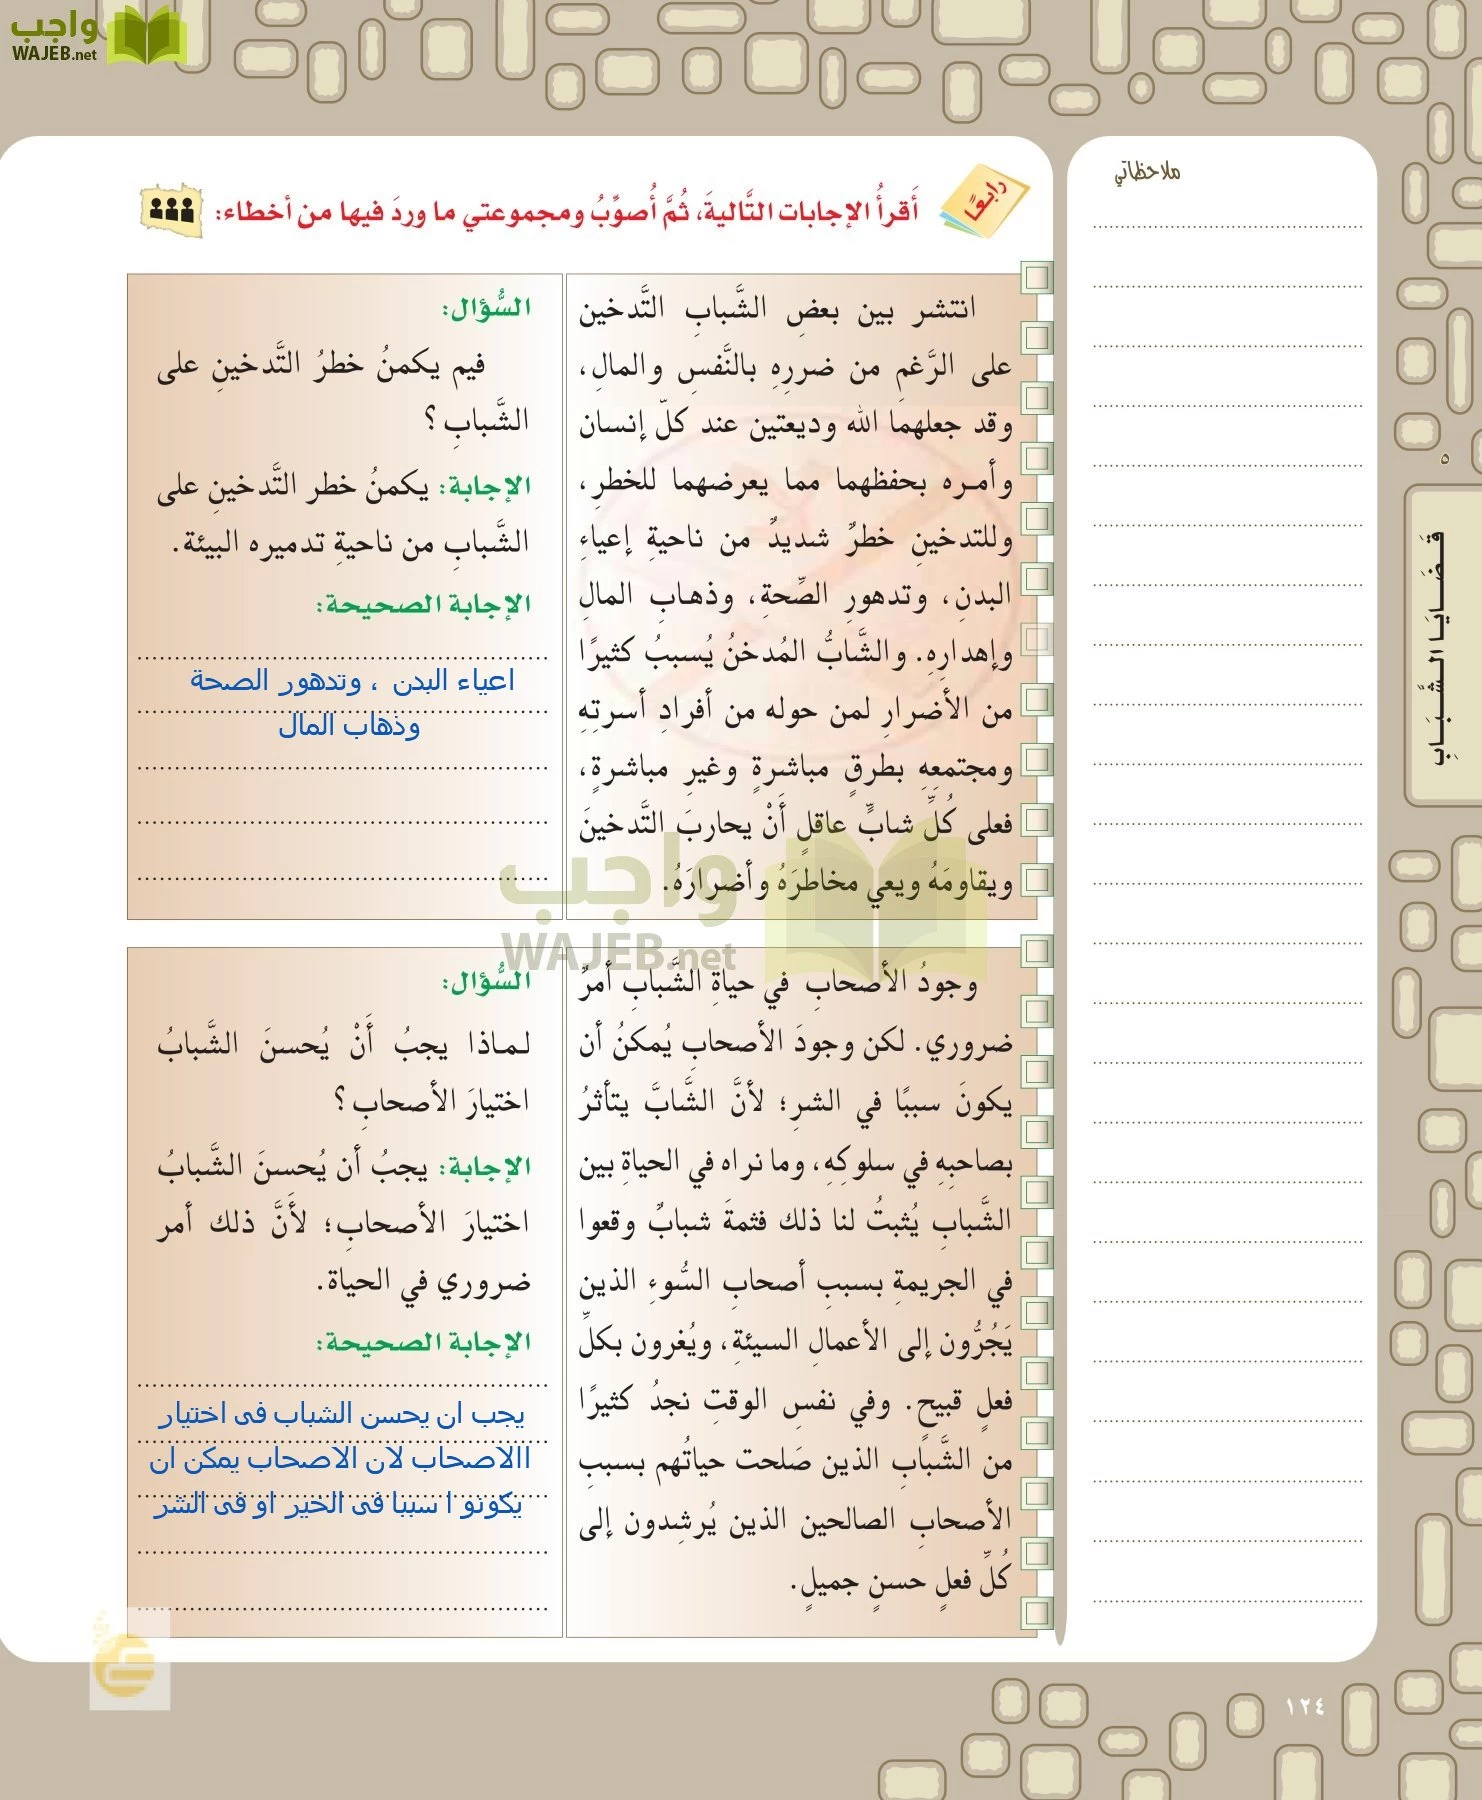 واجب
WAJEB.net
ملاحظاتي
رابعًا
أَقرأُ الإجابات التَّاليةَ، ثُمَّ أُصوِّبُ ومجموعتي ما وردَ فيها من أخطاء:
انتشر بين بعضِ الشَّبابِ التَّدخين
على الرَّغمِ من ضررِهِ بالنَّفسِ والمالِ،
وقد جعلهما الله وديعتين عند كلّ إنسان
وأمره بحفظهما مما يعرضهما للخطرِ،
وللتدخينِ خطرٌ شديدٌ من ناحيةِ إعياءِ
البدنِ، وتدهورِ الصِّحةِ، وذهابِ المالِ
وإهدارِهِ. والشَّابُّ المُدخنُ يُسببُ كثيرًا
من الأضرارِ لمن حوله من أفرادِ أسرتِهِ
ومجتمعِهِ بطرقٍ مباشرةٍ وغيرِ مباشرةٍ،
فعلى كُلِّ شابٍّ عاقلٍ أَنْ يحاربَ التَّدخينَ
ويقاومَهُ ويعي مخاطرَهُ وأضرارَهُ.
السُّؤال:
فيم يكمنُ خطرُ التَّدخينِ على
الشَّبابِ؟
الإجابة: يكمنُ خطر التَّدخينِ على
الشَّبابِ من ناحيةِ تدميره البيئة.
الإجابة الصحيحة:
اعياء البدن ، وتدهور الصحة
وذهاب المال
واجب
WAJEB.net
وجودُ الأصحابِ في حياةِ الشَّبابِ أمرٌ
ضروري. لكن وجودَ الأصحابِ يُمكنُ أن
يكونَ سببًا في الشرِ؛ لأنَّ الشَّابَّ يتأثرُ
بصاحبِهِ في سلوكِهِ، وما نراه في الحياةِ بين
الشَّبابِ يُثبتُ لنا ذلك فثمةَ شبابٌ وقعوا
في الجريمةِ بسببِ أصحابِ السُّوءِ الذين
يَجُرُّون إلى الأعمالِ السيئةِ، ويُغرون بكلِّ
فعلٍ قبيحٍ. وفي نفسِ الوقتِ نجدُ كثيرًا
من الشَّبابِ الذين صَلحت حياتُهم بسببِ
الأصحابِ الصالحين الذين يُرشِدون إلى
كُلِّ فعلٍ حسنٍ جميلٍ.
السُّؤال:
لماذا يجبُ أَنْ يُحسنَ الشَّبابُ
اختيارَ الأصحابِ؟
الإجابة: يجبُ أن يُحسِنَ الشَّبابُ
اختيارَ الأصحابِ؛ لأنَّ ذلك أمر
ضروري في الحياة.
الإجابة الصحيحة:
يجب ان يحسن الشباب فى اختيار
االاصحاب لان الاصحاب يمكن ان
يكونو ا سببا فى الخير او فى الشر
٥
قَضَايَا الشَّبَابِ
١٢٤